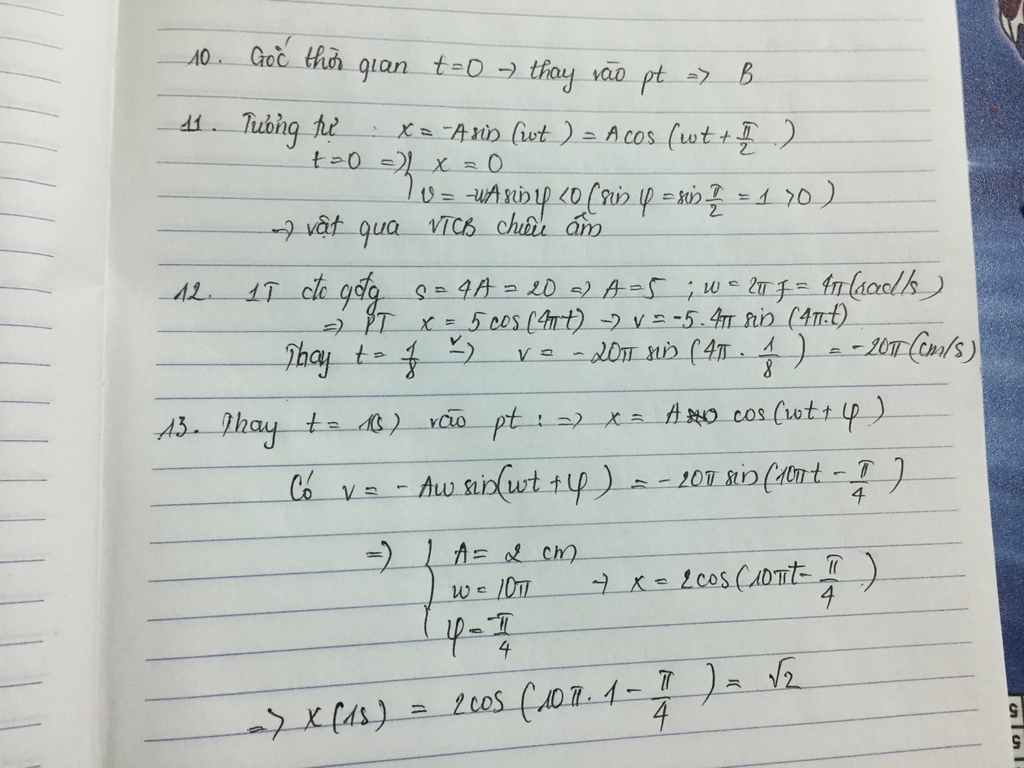 10. Gốc thời gian t=0 → thay vào pt => B
11. Tương tự : x = -Asin(ωt) = Acos(ωt + π/2)
t=0 => { x = 0
v = -ωAsinφ<0 (sinφ = sin π/2 = 1 >0)
→ vật qua VTCB chiều âm
12. 1T cđ quãng s = 4A = 20 => A = 5 ; ω = 2πf = 4π(rad/s)
=> PT x = 5cos(4πt) → v = -5.4πsin(4π.t)
Thay t = 1/8 → v = -20π sin(4π . 1/8) = -20π(cm/s)
13. Thay t = 1(s) vào pt : => x = A cos(ωt + φ)
Có v = -Aω sin(ωt + φ) = -20πsin(10πt - π/4)
=> { A = 2 cm
ω = 10π → x = 2cos(10πt - π/4)
φ = -π/4
=> x(1s) = 2cos(10π.1 - π/4) = √2
5
5